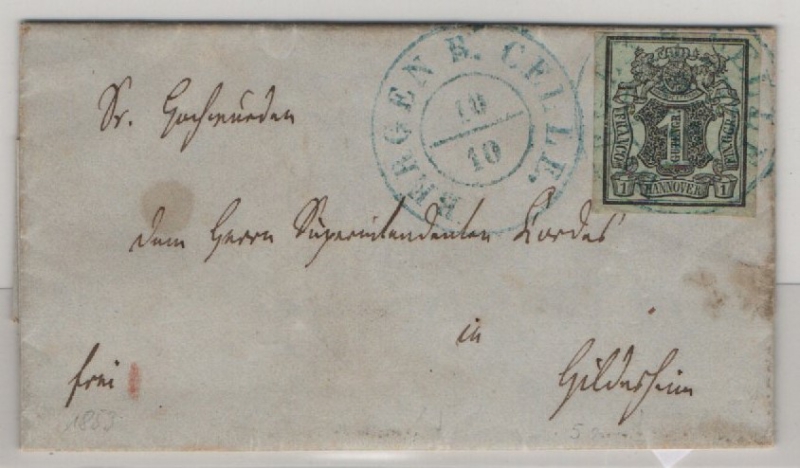 BERGEN B. CELLE.
10
10
FRANCO
1
GUTENGR.
HANNOVER
1
1
Sr. Hochwürden
dem Herrn Superintendenten Kordes
in
frei
Hildesheim
1853